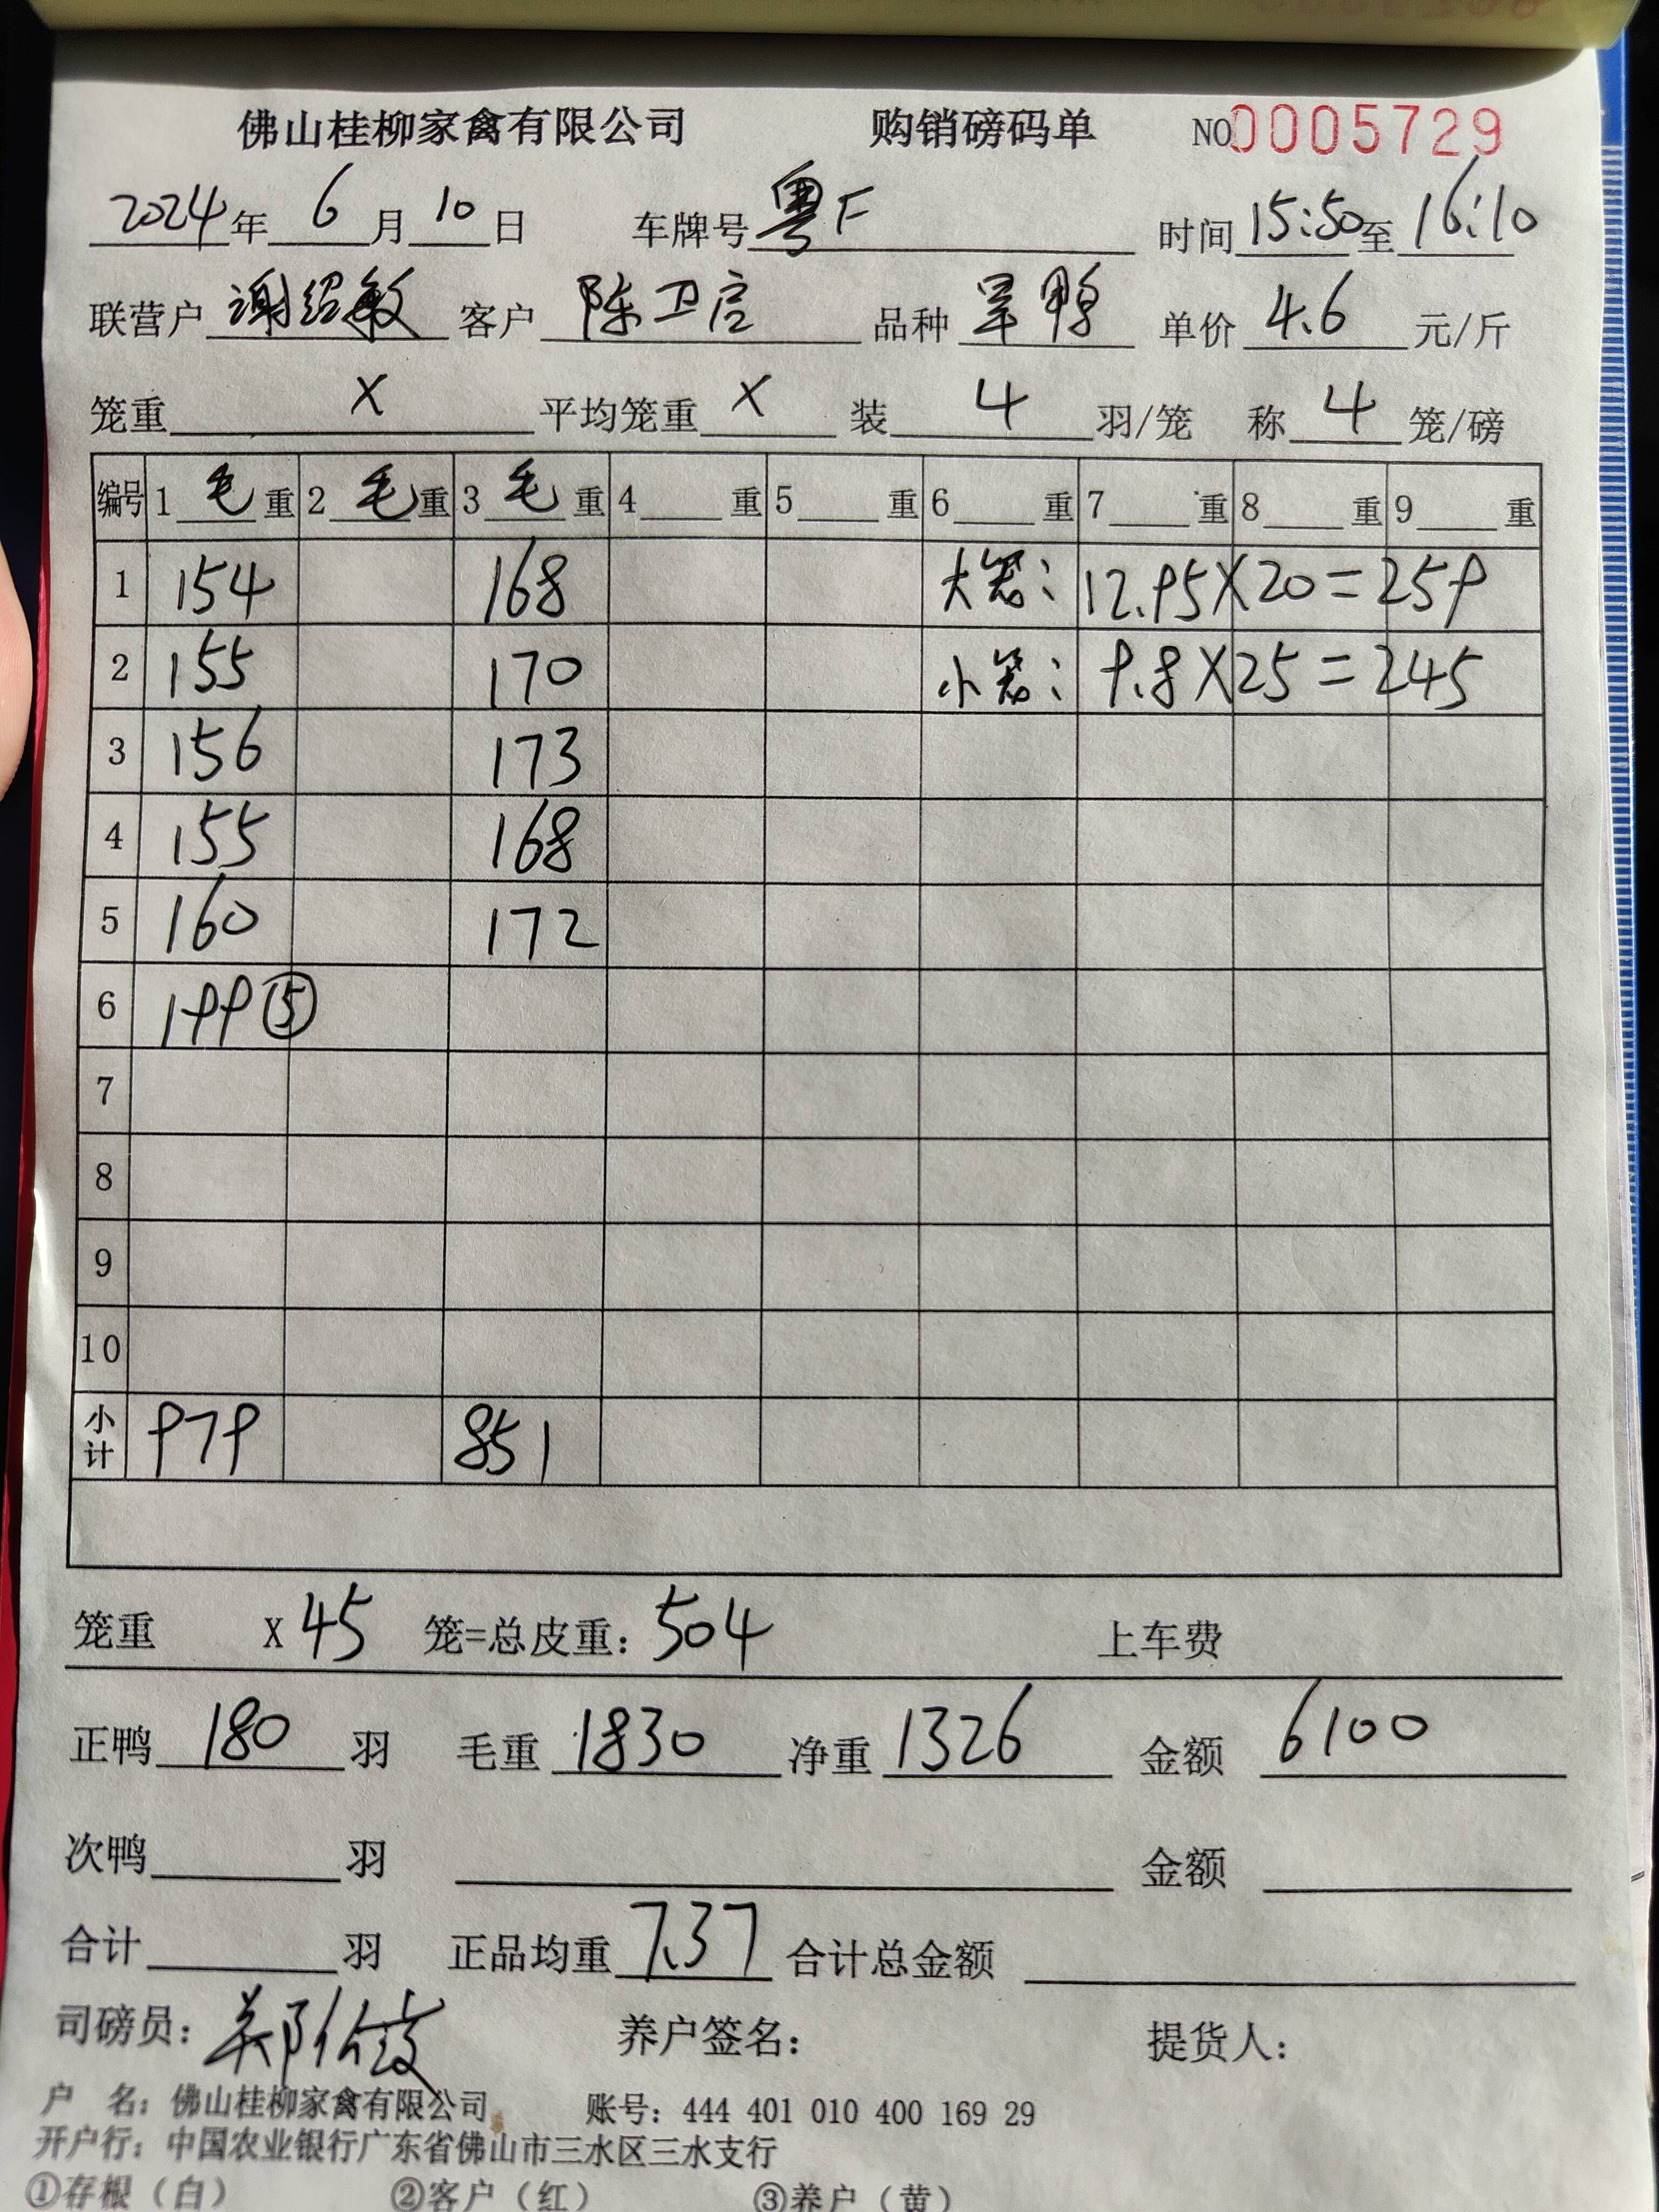 佛山桂柳家禽有限公司 购销磅码单 NO 0005729
2024年 6 月 10 日 车牌号 粤F 时间 15:50 至 16:10
联营户 谢绍敏 客户 陈卫启 品种 旱鸭 单价 4.6 元/斤
笼重 X 平均笼重 X 装 4 羽/笼 称 4 笼/磅
编号 1 毛 重 2 毛 重 3 毛 重 4 重 5 重 6 重 7 重 8 重 9 重
1 154 168 大笼: 12.95X20=259
2 155 170 小笼: 9.8X25=245
3 156 173
4 155 168
5 160 172
6 199⑤
7
8
9
10
小计 979 851
笼重 X 45 笼=总皮重: 504 上车费
正鸭 180 羽 毛重 1830 净重 1326 金额 6100
次鸭 羽 金额
合计 羽 正品均重 7.37 合计总金额
司磅员: 郑 养户签名: 提货人:
户 名: 佛山桂柳家禽有限公司 账号: 444 401 010 400 169 29
开户行: 中国农业银行广东省佛山市三水区三水支行
①存根（白） ②客户（红） ③养户（黄）